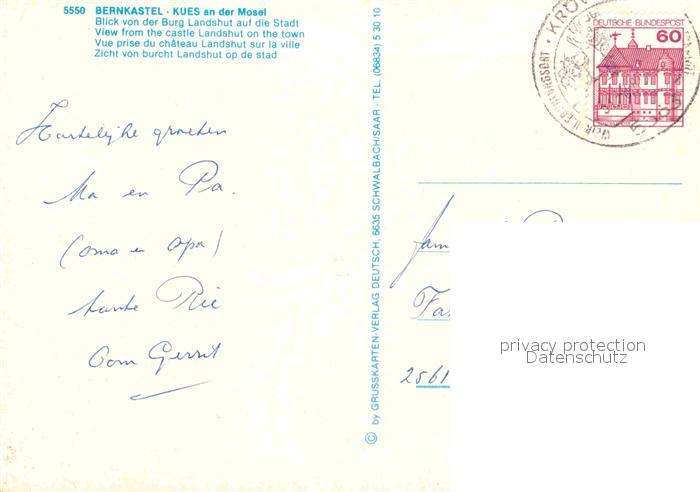 5550 BERNKASTEL - KUES an der Mosel
Blick von der Burg Landshut auf die Stadt
View from the castle Landshut on the town
Vue prise du château Landshut sur la ville
Zicht von burcht Landshut op de stad
Hartelijke groeten
Ma en Pa.
(oma en opa)
tante Rie
Oom Gerrit
© by GRUSSKARTEN-VERLAG DEUTSCH, 6635 SCHWALBACH/SAAR · TEL. (06834) 5 30 10
DEUTSCHE BUNDESPOST
60
KRÖV
Fam
2561
privacy protection
Datenschutz